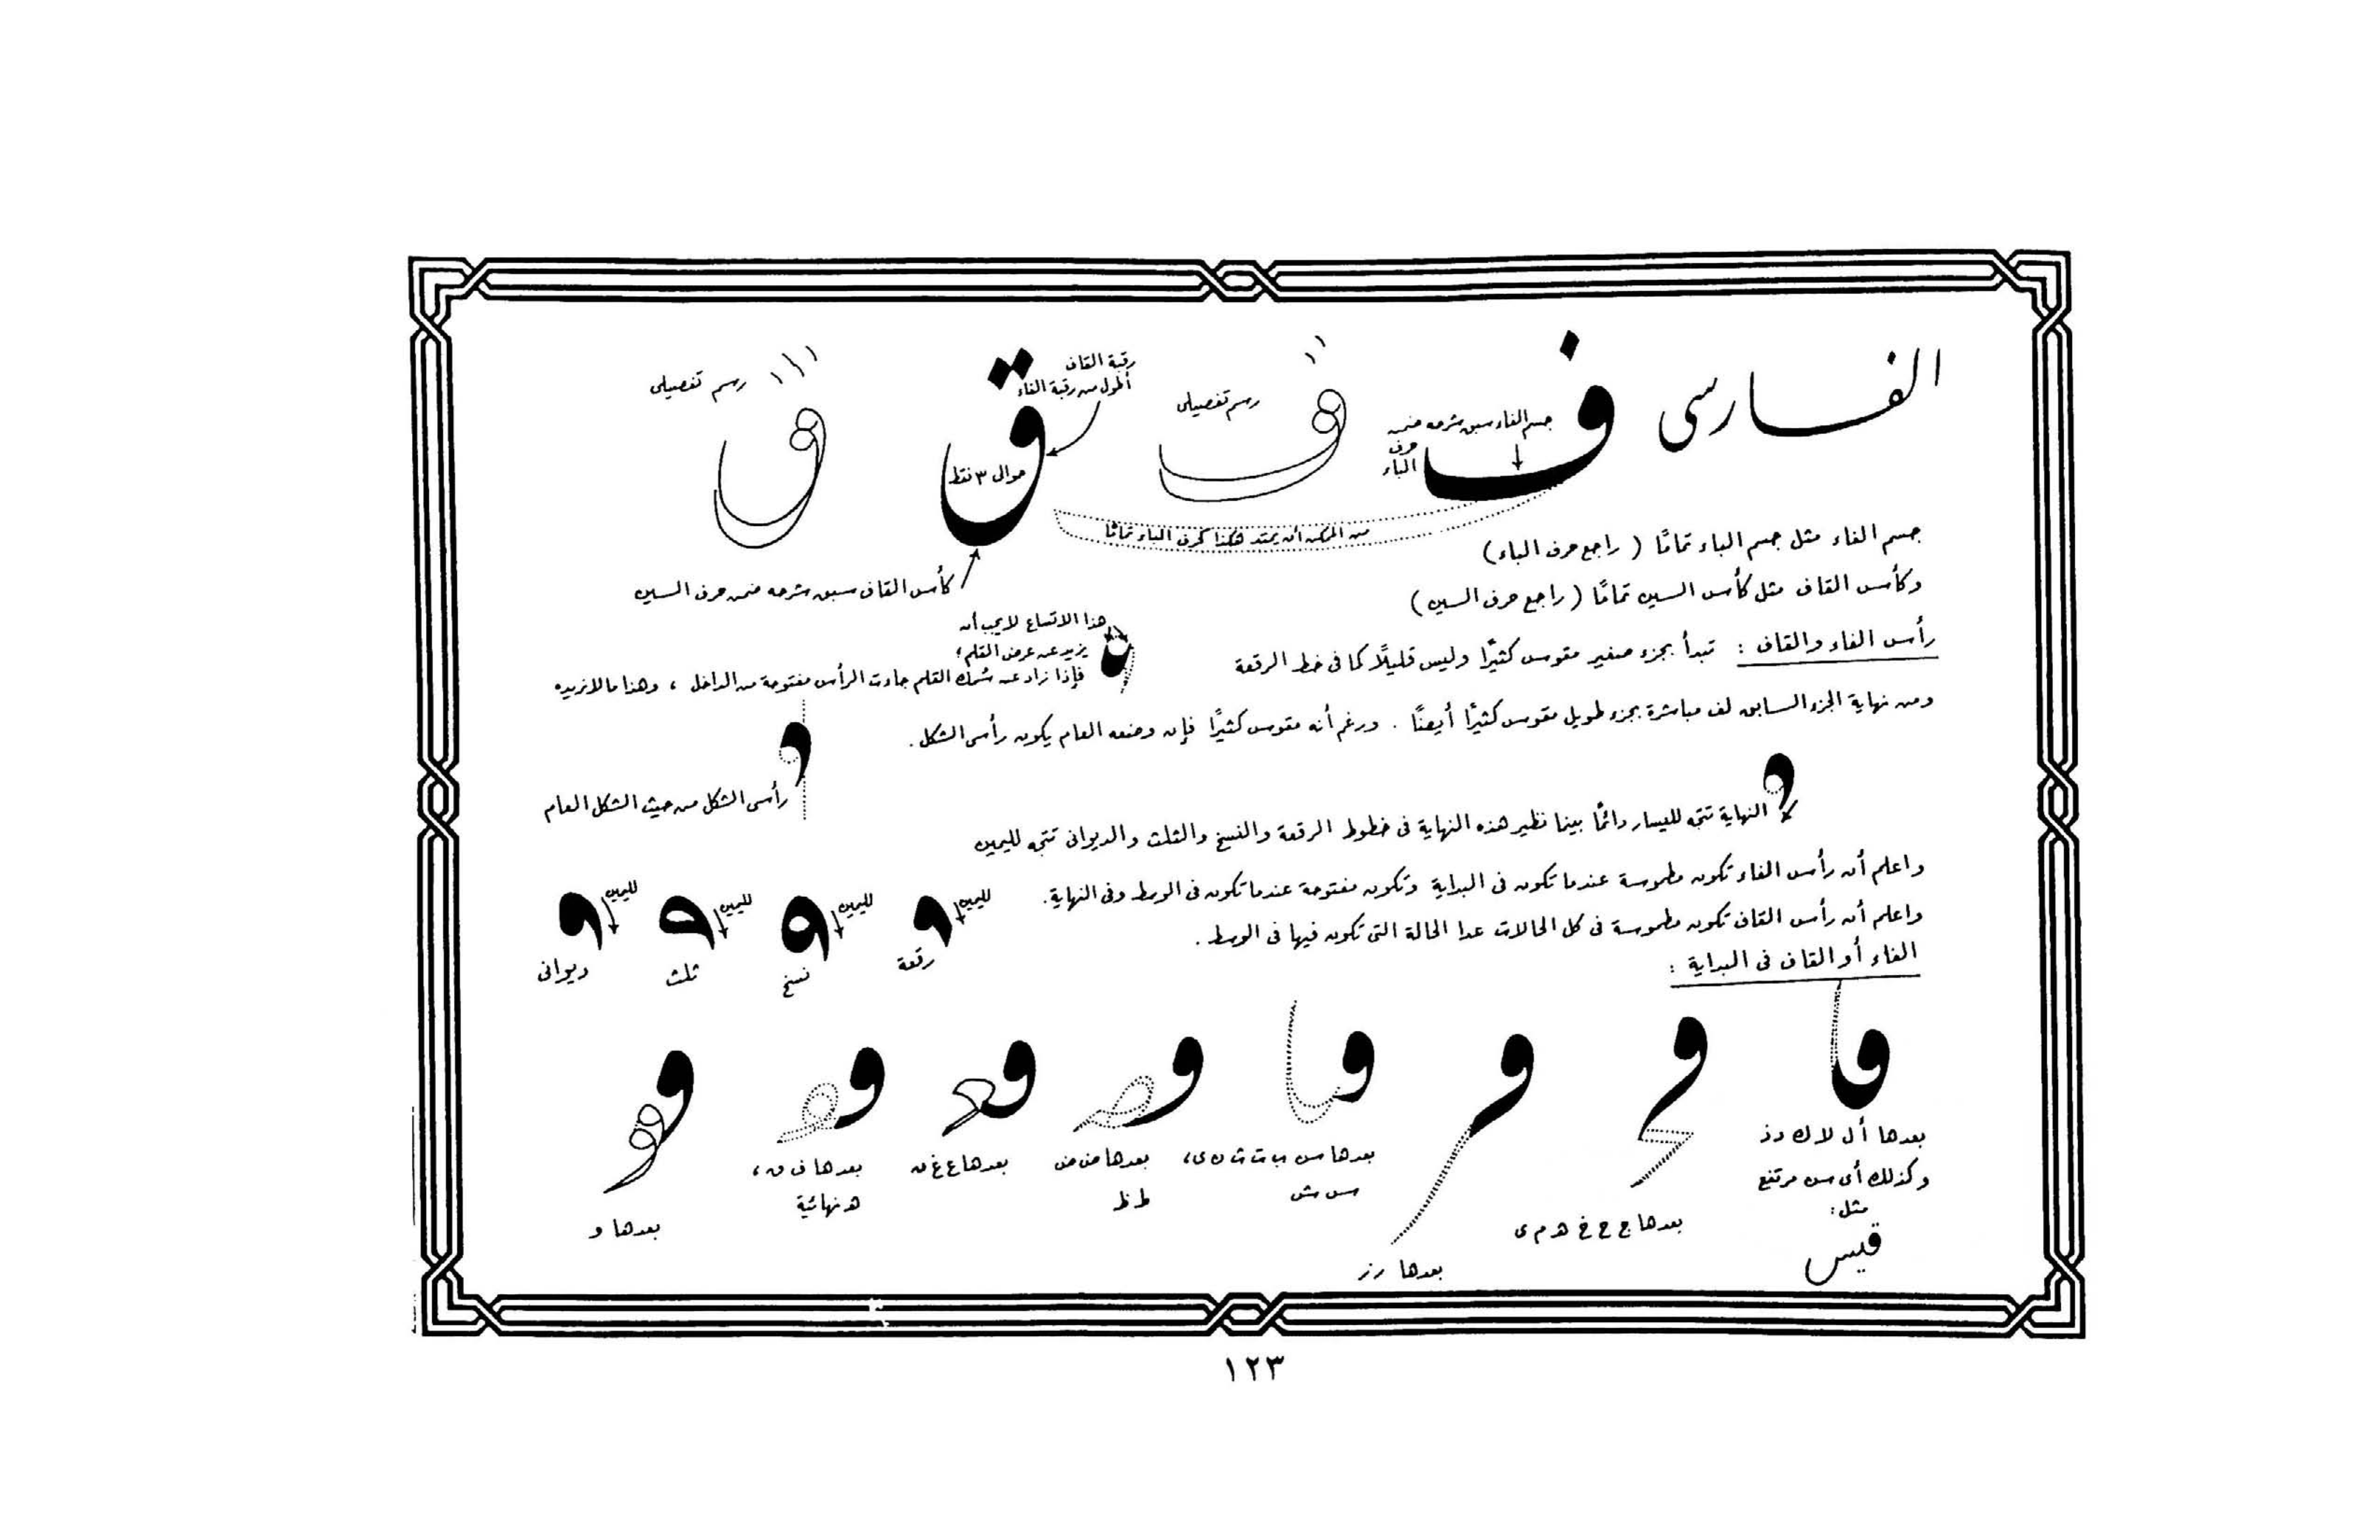 الفارسى
ف
جسم الفاء سبق شرحه ضمن
حرف
الباء
رسم تفصيلى
ق
رقبة القاف
أطول من رقبة الفاء
حوالى ٣ نقط
رسم تفصيلى
من الممكن أن يمتد هكذا كحرف الباء تمامًا
كأس القاف سبق شرحه ضمن حرف السين
جسم الفاء مثل جسم الباء تمامًا ( راجع حرف الباء)
وكأس القاف مثل كأس السين تمامًا (راجع حرف السين)
رأس الفاء والقاف : تبدأ بجزء صغير مقوس كثيرًا وليس قليلًا كما فى خط الرقعة
هذا الاتساع لايجب أن
يزيد عن عرض القلم؛
فإذا زاد عن سُمك القلم جاءت الرأس مفتوحة من الداخل ، وهذا مالانريده
ومن نهاية الجزء السابق لف مباشرة بجزء طويل مقوس كثيرًا أيضًا . ورغم أنه مقوس كثيرًا فإن وضعه العام يكون رأسى الشكل .
رأسى الشكل من حيث الشكل العام
النهاية تتجه لليسار دائمًا بينما نظير هذه النهاية فى خطوط الرقعة والنسخ والثلث والديوانى تتجه لليمين
واعلم أن رأس الفاء تكون مطموسة عندما تكون فى البداية وتكون مفتوحة عندما تكون فى الوسط وفى النهاية.
واعلم أن رأس القاف تكون مطموسة فى كل الحالات عدا الحالة التى تكون فيها فى الوسط .
لليمين
رقعة
لليمين
نسخ
لليمين
ثلث
لليمين
ديوانى
الفاء أو القاف فى البداية :
بعدها أ ل لا ك د ذ
وكذلك أى سن مرتفع
مثل:
قيس
بعدها ج ح خ هـ م ى
بعدها ر ز
بعدها س ب ت ث ن ى،
س ش
بعدها ص ض
ط ظ
بعدها ع غ ق
بعدها ف ق ،
ه نهائية
بعدها و
١٢٣